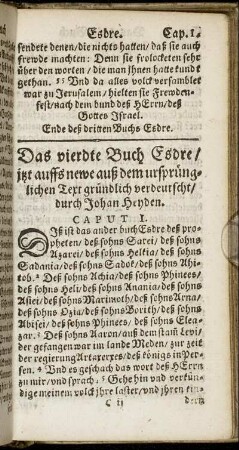 Esdre. Cap. 1.
sendete denen/ die nichts hatten/ daß sie auch
frewde machten: Denn sie frolocketen sehr
über den worten/ die man Ihnen hatte kundt
gethan. 55 Vnd da alles volck versamblet
war zu Jerusalem/ hielten sie Frewden-
fest/ nach dem bund deß HErrn/ deß
Gottes Israel.
Ende deß dritten Buchs Esdre.
Das vierdte Buch Esdre/
jtzt auffs newe auß dem ursprüng-
lichen Text gründlich verdeutscht/
durch Johan Heyden.
CAPUT I.
DIß ist das ander buch Esdre deß pro-
pheten/ deß sohns Sarei/ deß sohns
Azarei/ deß sohns Helkia/ deß sohns
Sadania/ deß sohns Sadok/ deß sohns Ahi-
tob. 2 Deß sohns Achia/ deß sohns Phinees/
deß sohns Heli/ deß sohns Anania/ deß sohns
Asiei/ deß sohns Marimoth/ deß sohns Arna/
deß sohns Ozia/ deß sohns Borith/ deß sohns
Abisei/ deß sohns Phinees/ deß sohns Elea-
zar. 3 Deß sohns Aaron/ auß dem stam Levi/
der gefangen war im lande Meden/ zur zeit
der regierung Artaxerxes/ deß königs in Per-
sen. 4 Vnd es geschach das wort deß HErrn
zu mir/ und sprach. 5 Gehe hin und verkün-
dige meinem volck jhre laster/ und jhren kin-
C ij dern